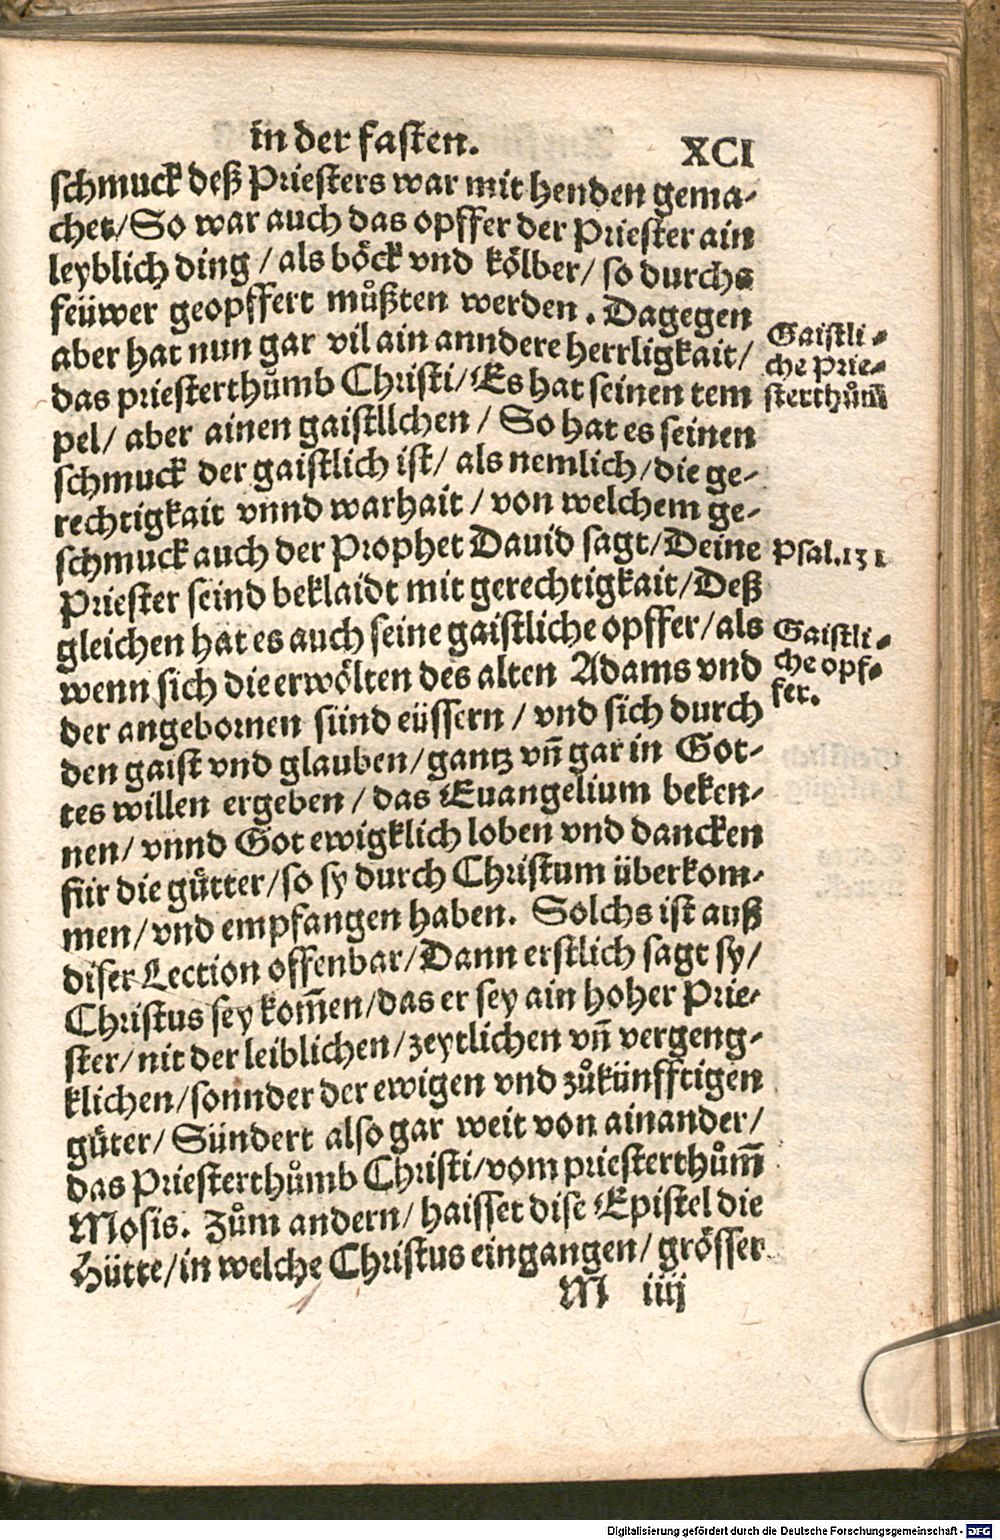 in der fasten. XCI
schmuck deß Priesters war mit henden gema-
chet/So war auch das opffer der Priester ain
leyblich ding / als böck vnd kölber/ so durchs
feüwer geopffert můßten werden. Dagegen
aber hat nun gar vil ain anndere herrligkait/
das priesterthůmb Christi/Es hat seinen tem
pel/ aber ainen gaistllchen / So hat es seinen
schmuck der gaistlich ist/ als nemlich/die ge-
rechtigkait vnnd warhait / von welchem ge-
schmuck auch der Prophet Dauid sagt/Deine
Priester seind beklaidt mit gerechtigkait/Deß
gleichen hat es auch seine gaistliche opffer/als
wenn sich die erwölten des alten Adams vnd
der angebornen sünd eüssern / vnd sich durch
den gaist vnd glauben/gantz vñ gar in Got-
tes willen ergeben / das Euangelium beken-
nen/ vnnd Got ewigklich loben vnd dancken
für die gůtter/so sy durch Christum überkom-
men/vnd empfangen haben. Solchs ist auß
diser Lection offenbar/Dann erstlich sagt sy/
Christus sey kom̃en/das er sey ain hoher Prie-
ster/nit der leiblichen/zeytlichen vñ vergeng-
klichen/sonnder der ewigen vnd zůkünfftigen
gůter/ Sündert also gar weit von ainander/
das Priesterthůmb Christi/vom priesterthům̃
Mosis. Zům andern/ haisset dise Epistel die
Hütte/in welche Christus eingangen/ grösser
M iiij
Gaistli-
che Prie-
sterthům̃
Psal.131
Gaistli-
che opf-
fer.
Digitalisierung gefördert durch die Deutsche Forschungsgemeinschaft - DFG